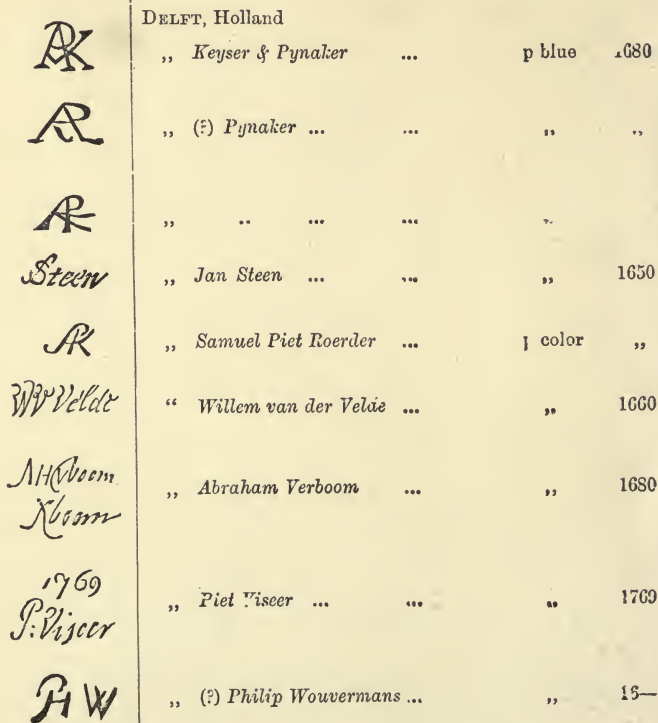 DELFT, Holland
APK „ Keyser & Pynaker ... p blue 1680
„ (?) Pynaker ... ... „ „
„ „ ... ... „
Steen „ Jan Steen ... ... „ 1650
„ Samuel Piet Roerder ... p color „
WVVelde “ Willem van der Velde ... „ 1660
„ Abraham Verboom ... „ 1680
1769
P:Viseer „ Piet Viseer ... ... „ 1769
PHW „ (?) Philip Wouvermans ... „ 16—